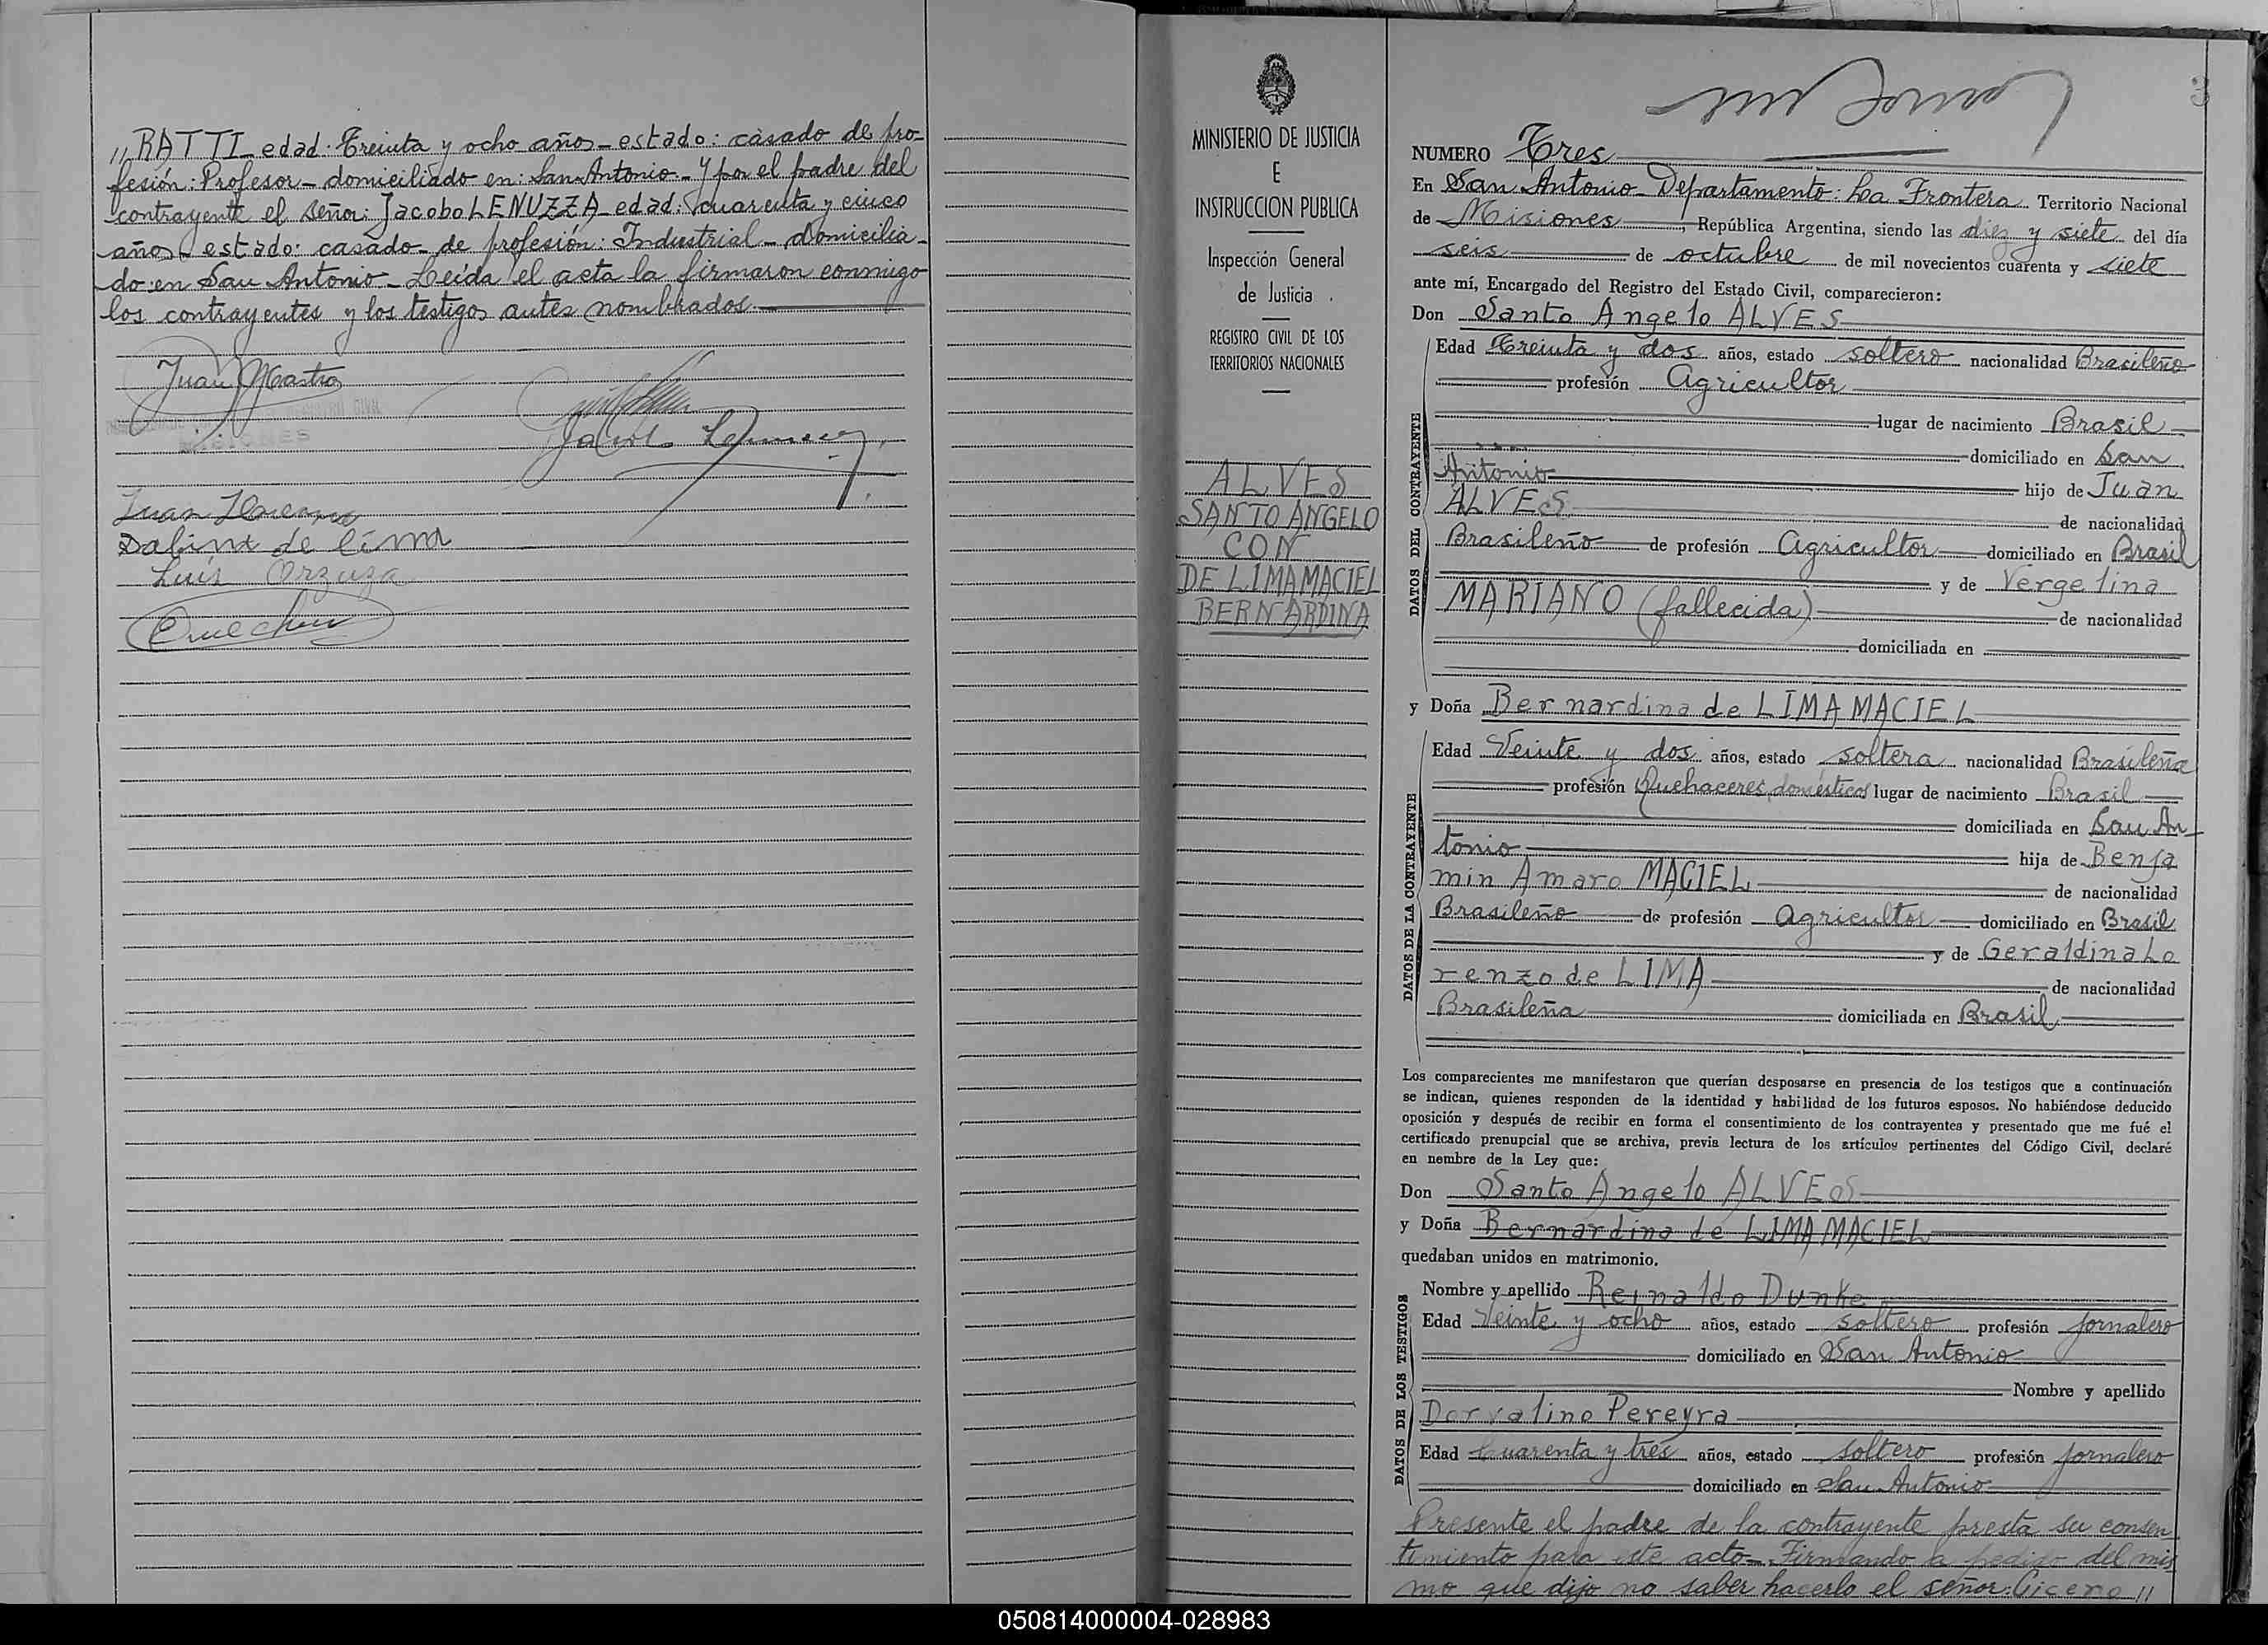 // RATTI - edad: Treinta y ocho años - estado: casado de pro-
fesión: Profesor - domiciliado en: San Antonio - Y por el padre del
contrayente el señor: Jacobo LENUZZA - edad: cuarenta y cinco
años - estado: casado - de profesión: Industrial - Domicilia-
do en San Antonio - Leída el acta la firmaron conmigo
los contrayentes y los testigos antes nombrados.
Juan
MISIONES
Juan
Sabina de Lima
Luis Orzuza
MINISTERIO DE JUSTICIA
E
INSTRUCCION PUBLICA
Inspección General
de Justicia
REGISTRO CIVIL DE LOS
TERRITORIOS NACIONALES
ALVES
SANTO ANGELO
CON
DE LIMA MACIEL
BERNARDINA
3
NUMERO Tres
En San Antonio - Departamento: La Frontera Territorio Nacional
de Misiones, República Argentina, siendo las diez y siete del día
seis de octubre de mil novecientos cuarenta y siete
ante mí, Encargado del Registro del Estado Civil, comparecieron:
Don Santo Angelo ALVES
DATOS DEL CONTRAYENTE
Edad Treinta y dos años, estado soltero nacionalidad Brasileño
profesión Agricultor
lugar de nacimiento Brasil
domiciliado en San
Antonio hijo de Juan
ALVES de nacionalidad
Brasileño de profesión Agricultor domiciliado en Brasil
y de Vergelina
MARIANO (fallecida) de nacionalidad
domiciliada en
y Doña Bernardina de LIMA MACIEL
DATOS DE LA CONTRAYENTE
Edad Veinte y dos años, estado soltera nacionalidad Brasileña
profesión Quehaceres domésticos lugar de nacimiento Brasil
domiciliada en San An-
tonio hija de Benja
min Amaro MACIEL de nacionalidad
Brasileño de profesión Agricultor domiciliado en Brasil
y de Geraldina Lo
renzo de LIMA de nacionalidad
Brasileña domiciliada en Brasil
Los comparecientes me manifestaron que querían desposarse en presencia de los testigos que a continuación
se indican, quienes responden de la identidad y habilidad de los futuros esposos. No habiéndose deducido
oposición y después de recibir en forma el consentimiento de los contrayentes y presentado que me fué el
certificado prenupcial que se archiva, previa lectura de los artículos pertinentes del Código Civil, declaré
en nombre de la Ley que:
Don Santo Angelo ALVES
y Doña Bernardina de LIMA MACIEL
quedaban unidos en matrimonio.
DATOS DE LOS TESTIGOS
Nombre y apellido Reinaldo Dunke
Edad Veinte y ocho años, estado soltero profesión jornalero
domiciliado en San Antonio
Nombre y apellido
Dorvalino Pereyra
Edad Cuarenta y tres años, estado soltero profesión jornalero
domiciliado en San Antonio
Presente el padre de la contrayente presta su consen
timiento para este acto - Firmando a pedido del mis
mo que dijo no saber hacerlo el señor: Cicero //
050814000004-028983